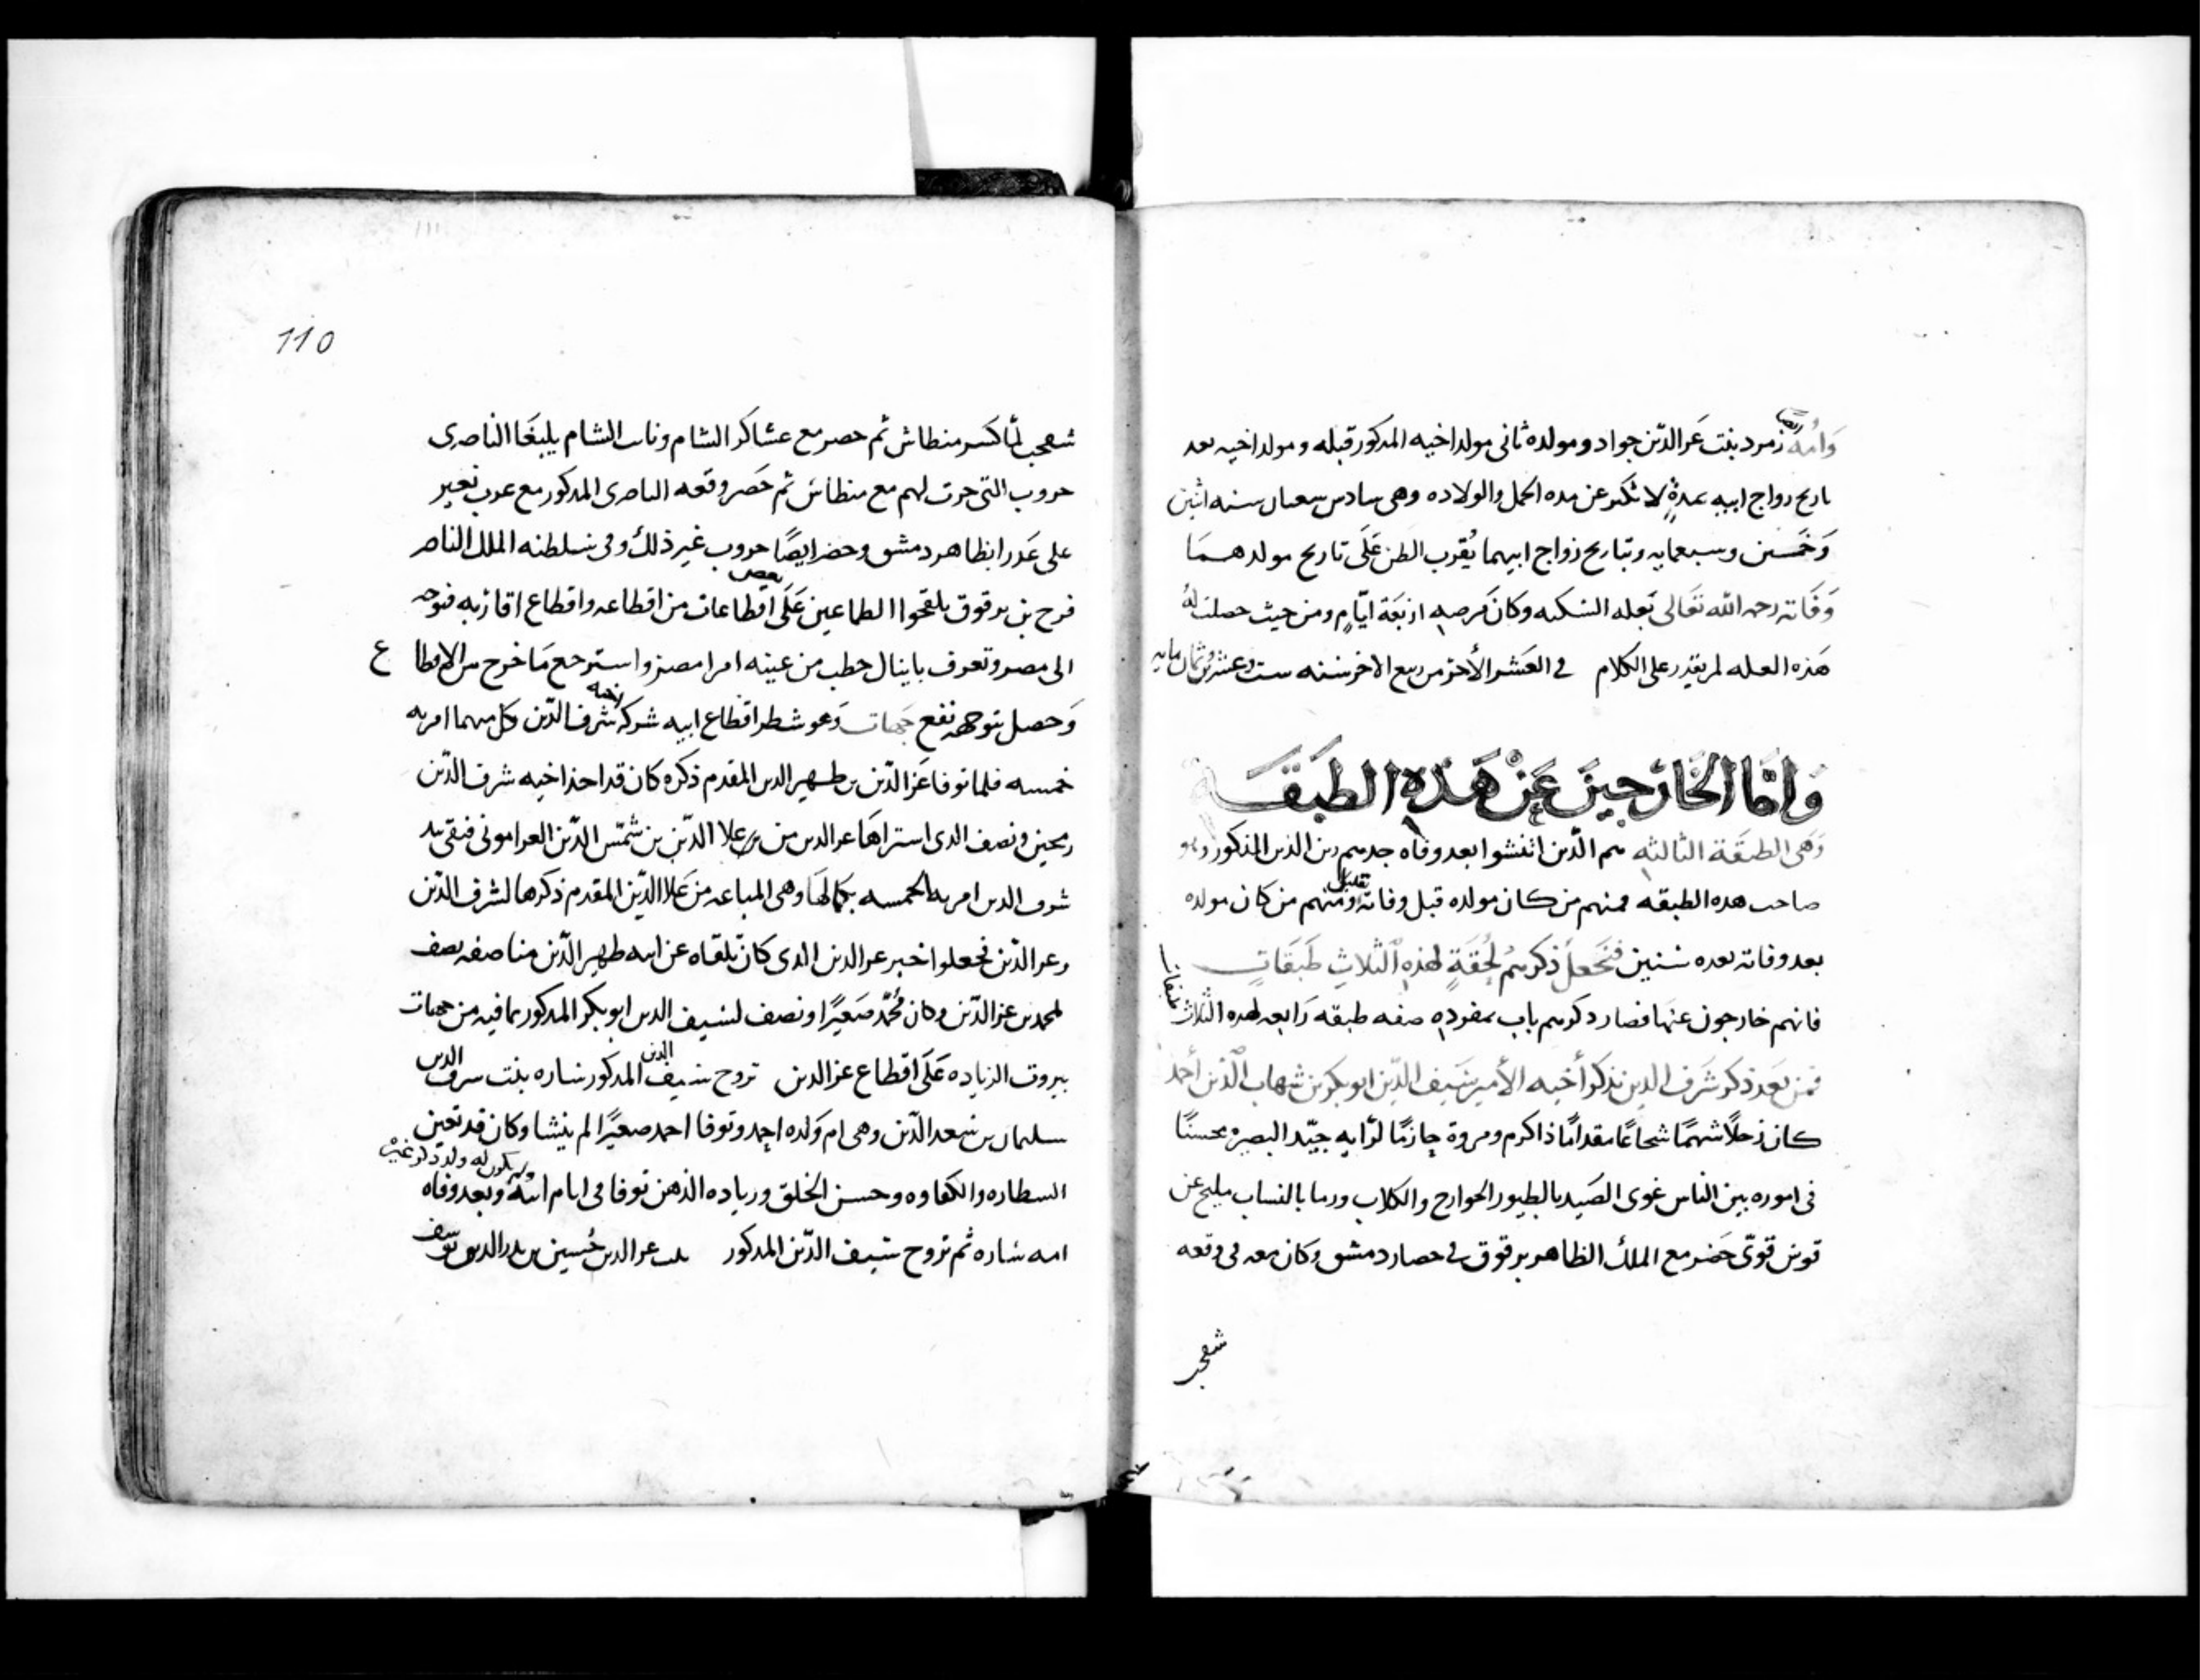 وأمه زمرد بنت عز الدين جواد ومولده ثانى مولد اخيه المدكور قبله ومولد اخيه بعد
تاريح زواج ابيه بمدةٍ لا تكو عن مده الحمل والولاده وهى سادس سعبان سنه اثنين
وَخَمسين وسبعمايه وبتاريح زواج ابيهما يُقرب الظن عَلَى تاريح مولدهمَا
وَفَاته رحمه الله تعَالى بَعله السَكته وكان مَرضه اربعَة ايّامٍ ومن حيث حصلت لهُ
هَذه العله لم يقدر على الكلام في العَشر الأخر من ربيع الاخر سنه ست وعشرين وثمان مايه
وَامّا الخَارجينَ عَنْ هَذهِ الطبَقَة
وَهى الطبقَة الثالثه هم الّذين انتشوا بعد وفاه جدهم زين الدين المذكور وهو
صاحب هده الطبقه فمنهم من كان مولده قبل وفاته بقليل ومنهم من كان مولده
بعد وفاته بعده سنين فنَجعل ذكرهمُ لحُقَةٍ لهَذهِ الثلاثِ طَبَقَاتٍ
فانهم خارجون عنهَا فصار دكرهم باب بمفرده صفه طبقه رَابعه لهده الثَلاث طبقات
فمن بَعَد ذكر شَرَف الدين نذكر أخيه الأمير سَيف الدّين ابو بكر بن شهاب الدّين أحمد
كان رَجلاً شهمًا شجاعًا مقدامًا ذا كرم ومروة حازمًا لرَايه جيّد البصيره محسنًا
فى اموره بين الناس غوى الصَيد بالطيور الجوارح والكلاب ورما بالنساب مليح عن
قوس قوىّ حَضر مع الملك الظاهر برقوق في حصار دمشق وَكان معه فى وقعه
شقحب
110
شقحب لمّا كسر منطاش ثم حصر مع عسَاكر الشام ونايب الشام يلبغَا الناصرى
حروب التى جرت لهم مع منطاش ثم حَضر وقعه الناصرى المدكور مع عرب نعير
على عَدرا بظاهر دمشق وحضر ايضًا حروب غير ذلك وفى سَلطنه الملك الناصر
فرح بن برقوق بلقحوا الطماعين عَلَى بعض اقطاعات من اقطاعه واقطاع اقاربه فتوجه
الى مصر وتعرف باينال حطب من عينه امرا مصر واسترجع مَا خرج من الاقطاع
وَحصل بتوجهه نفع جَهات وَهو شطر اقطاع ابيه شركه اخيه شرف الدّين وكل منهما امريه
خمسه فلما توفا عَز الدّين بن ظهير الدين المقدم ذكره كان قد احذ اخيه شرف الدّين
رمحين ونصف الدى استراهَا عز الدين من علا الدّين بن شمّس الدّين العرامونى فبقى بيد
شرف الدين امريه الخمسه بكمالهَا وهى المباعه من عَلا الدّين المقدم ذكرها لشرف الدّين
وعز الدّين فجعلوا خبر عز الدين الدى كان تلقاه عن ابيه ظهير الدّين مناصفه نصف
لمحمد بن عز الدّين وكان مُحمّد صَغيرًا ونصف لسيف الدين ابو بكر المدكور بما فيه من جهات
بيروت الزياده عَلَى اقطاع عز الدين تزوج سيف الدين المدكور ساره بنت سرف الدين
سليمان بن سَعد الدّين وهى ام وَلده احمد وتوفا احمد صغيرًا لم ينشا وكان قد تعين
ولم يكون له ولد ذكر غيرهُ
السطاره والكفاوه وحسن الخلق وزياده الذهن توفا فى ايام ابيه وبعد وفاه
امه ساره ثم تزوج سَيف الدّين المدكور بنت عز الدين حُسين بن بدر الدين يوسف